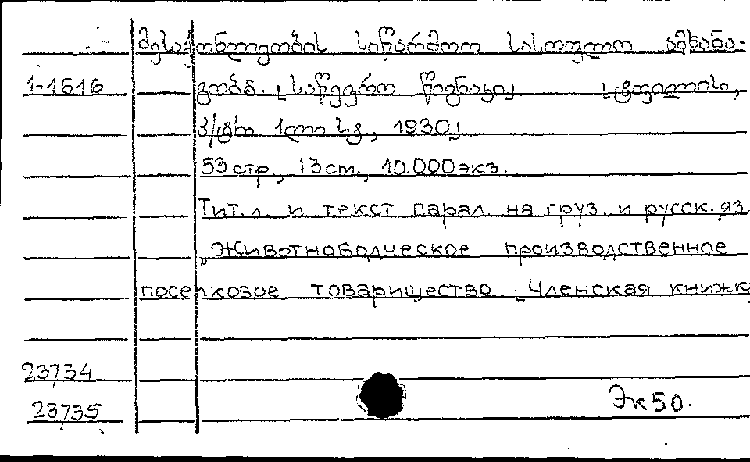 მესაქონლეობის საწარმოო სასოფლო ამხანა-
1-1616 გობა. [საწევრო წიგნაკი, ტფილისი,
1930]
53 стр., 13 cm., 10.000 экз.
Тит. л. и текст парал. на груз. и русск. яз
„Животноводческое производственное
поселковое товарищество. Членская книжк
23734
23735 Эк 50.